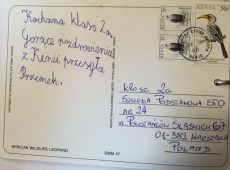 Kochana klaso 2a,
Gorące pozdrowienia
z Kenii przesyła
Przemek.
KENYA 5/-
KENYA
klasa 2a
Szkoła Podstawowa STO
nr 24
ul. Powstańców Śląskich 67
01-381 Warszawa
POLAND
AFRICAN WILDLIFE LEOPARD
SMM 47